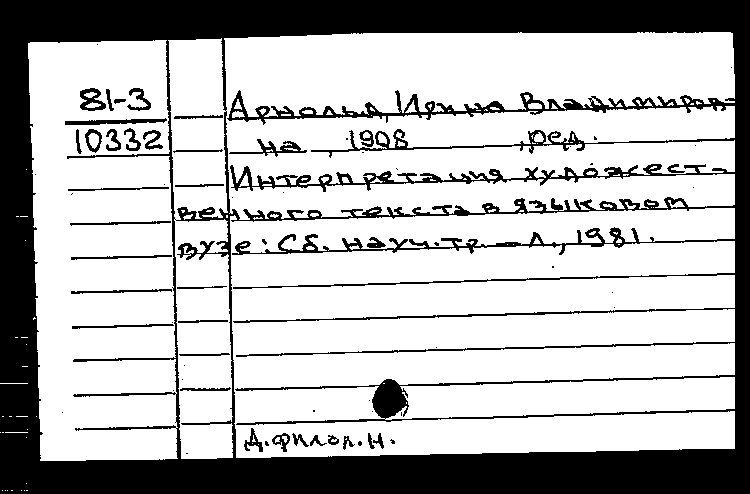 81-3
10332
Арнольд, Ирина Владимиров-
на, 1908 , ред.
Интерпретация художест-
венного текста в языковом
вузе: Сб. науч. тр. – Л., 1981.
Д. филол. н.